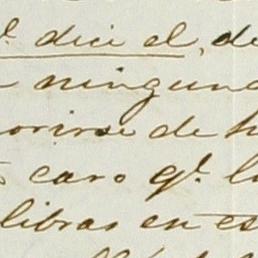 qᵉ. dice el, de
ninguna
morirse de h
caro qᵉ. l
libras en es